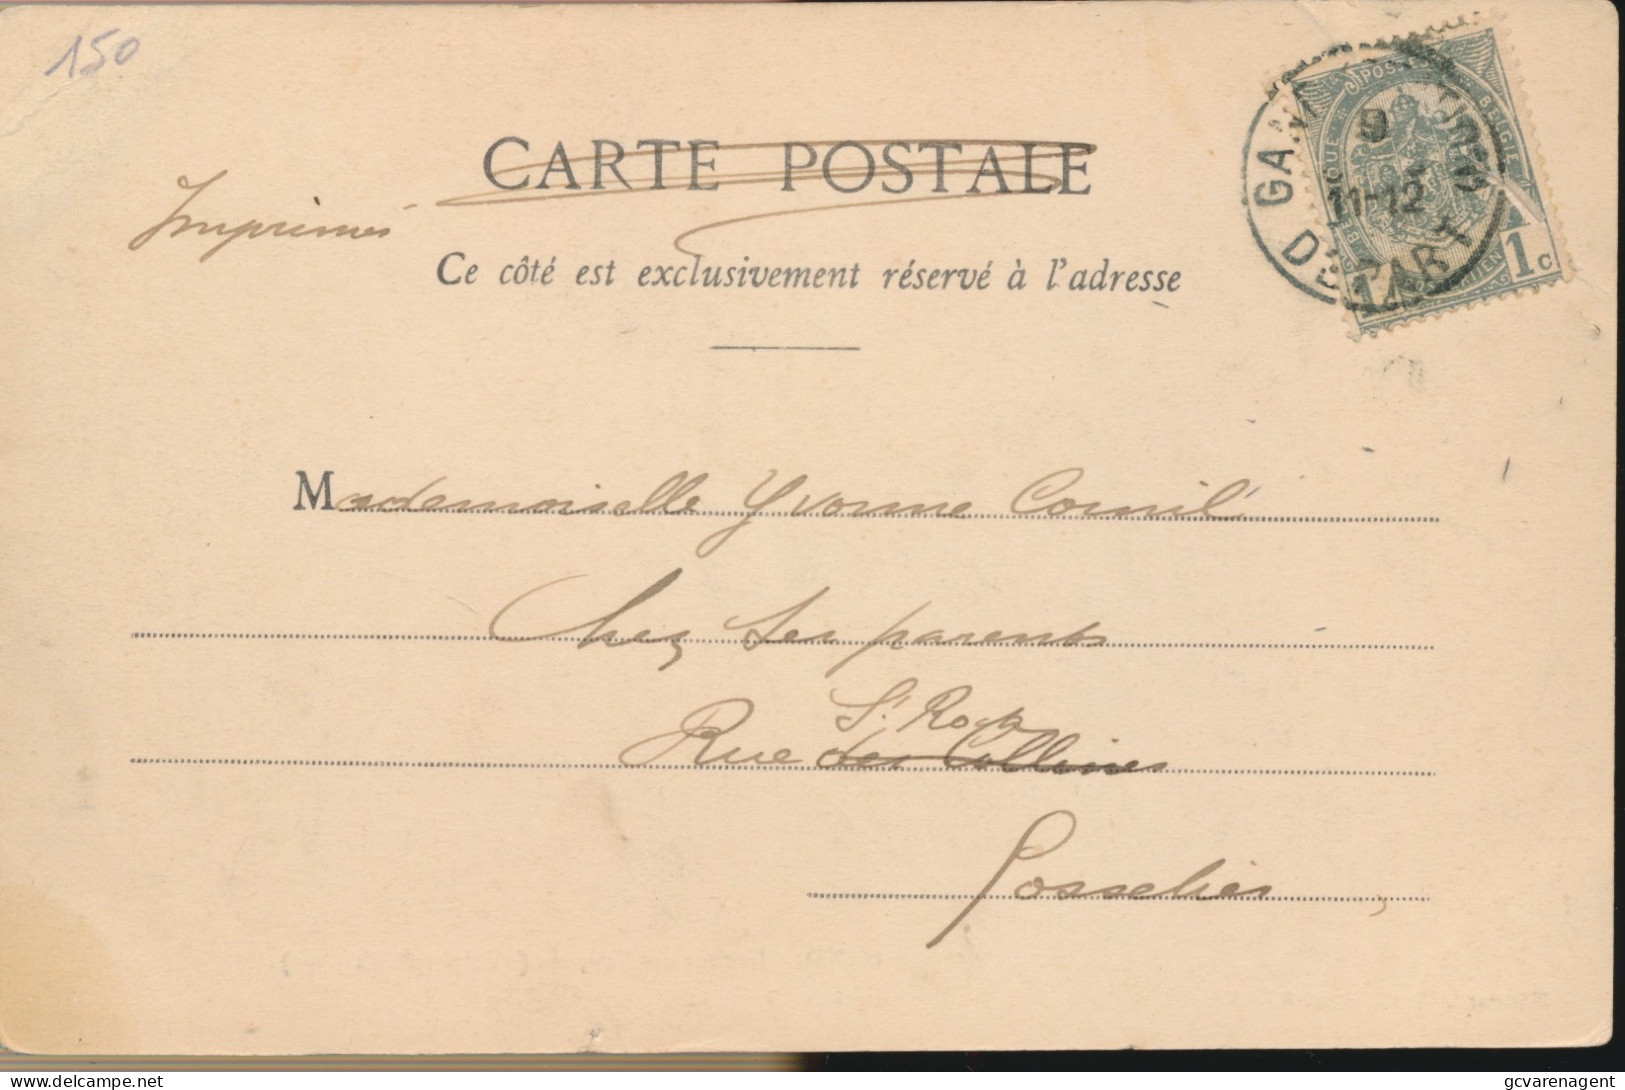 150
CARTE POSTALE
Imprimés
Ce côté est exclusivement réservé à l'adresse
GAND
9
11-12
DEPART
BELGIE
1c
Mademoiselle Yvonne Cornil
Chez Ses parents
St Roch
Rue des Collines
Gosselies
gcvarenagent